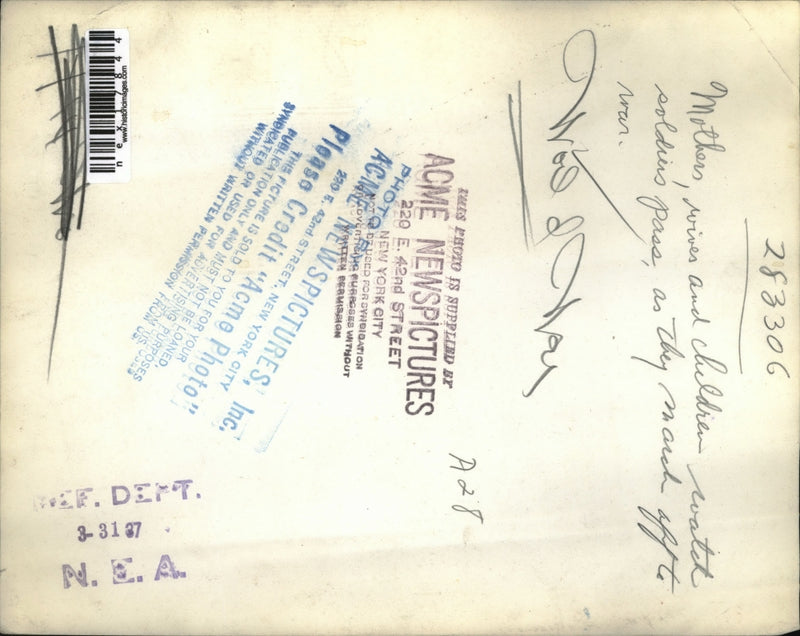 283306
Mothers, wives and children watch
soldiers pass, as they march off to
war.
A28
THIS PHOTO IS SUPPLIED BY
ACME NEWSPICTURES
220 E. 42nd STREET
NEW YORK CITY
NOT TO BE USED FOR SYNDICATION
PURPOSES WITHOUT
WRITTEN PERMISSION
PHOTO
ACME NEWSPICTURES, Inc.
220 E. 42nd STREET, NEW YORK CITY
Please Credit "Acme Photo"
THIS PICTURE IS SOLD TO YOU FOR YOUR
PUBLICATION ONLY AND MUST NOT BE LOANED,
SYNDICATED OR USED FOR ADVERTISING PURPOSES
WITHOUT WRITTEN PERMISSION FROM US
www.historicimages.com
REF. DEPT.
3-31 37
N. E. A.